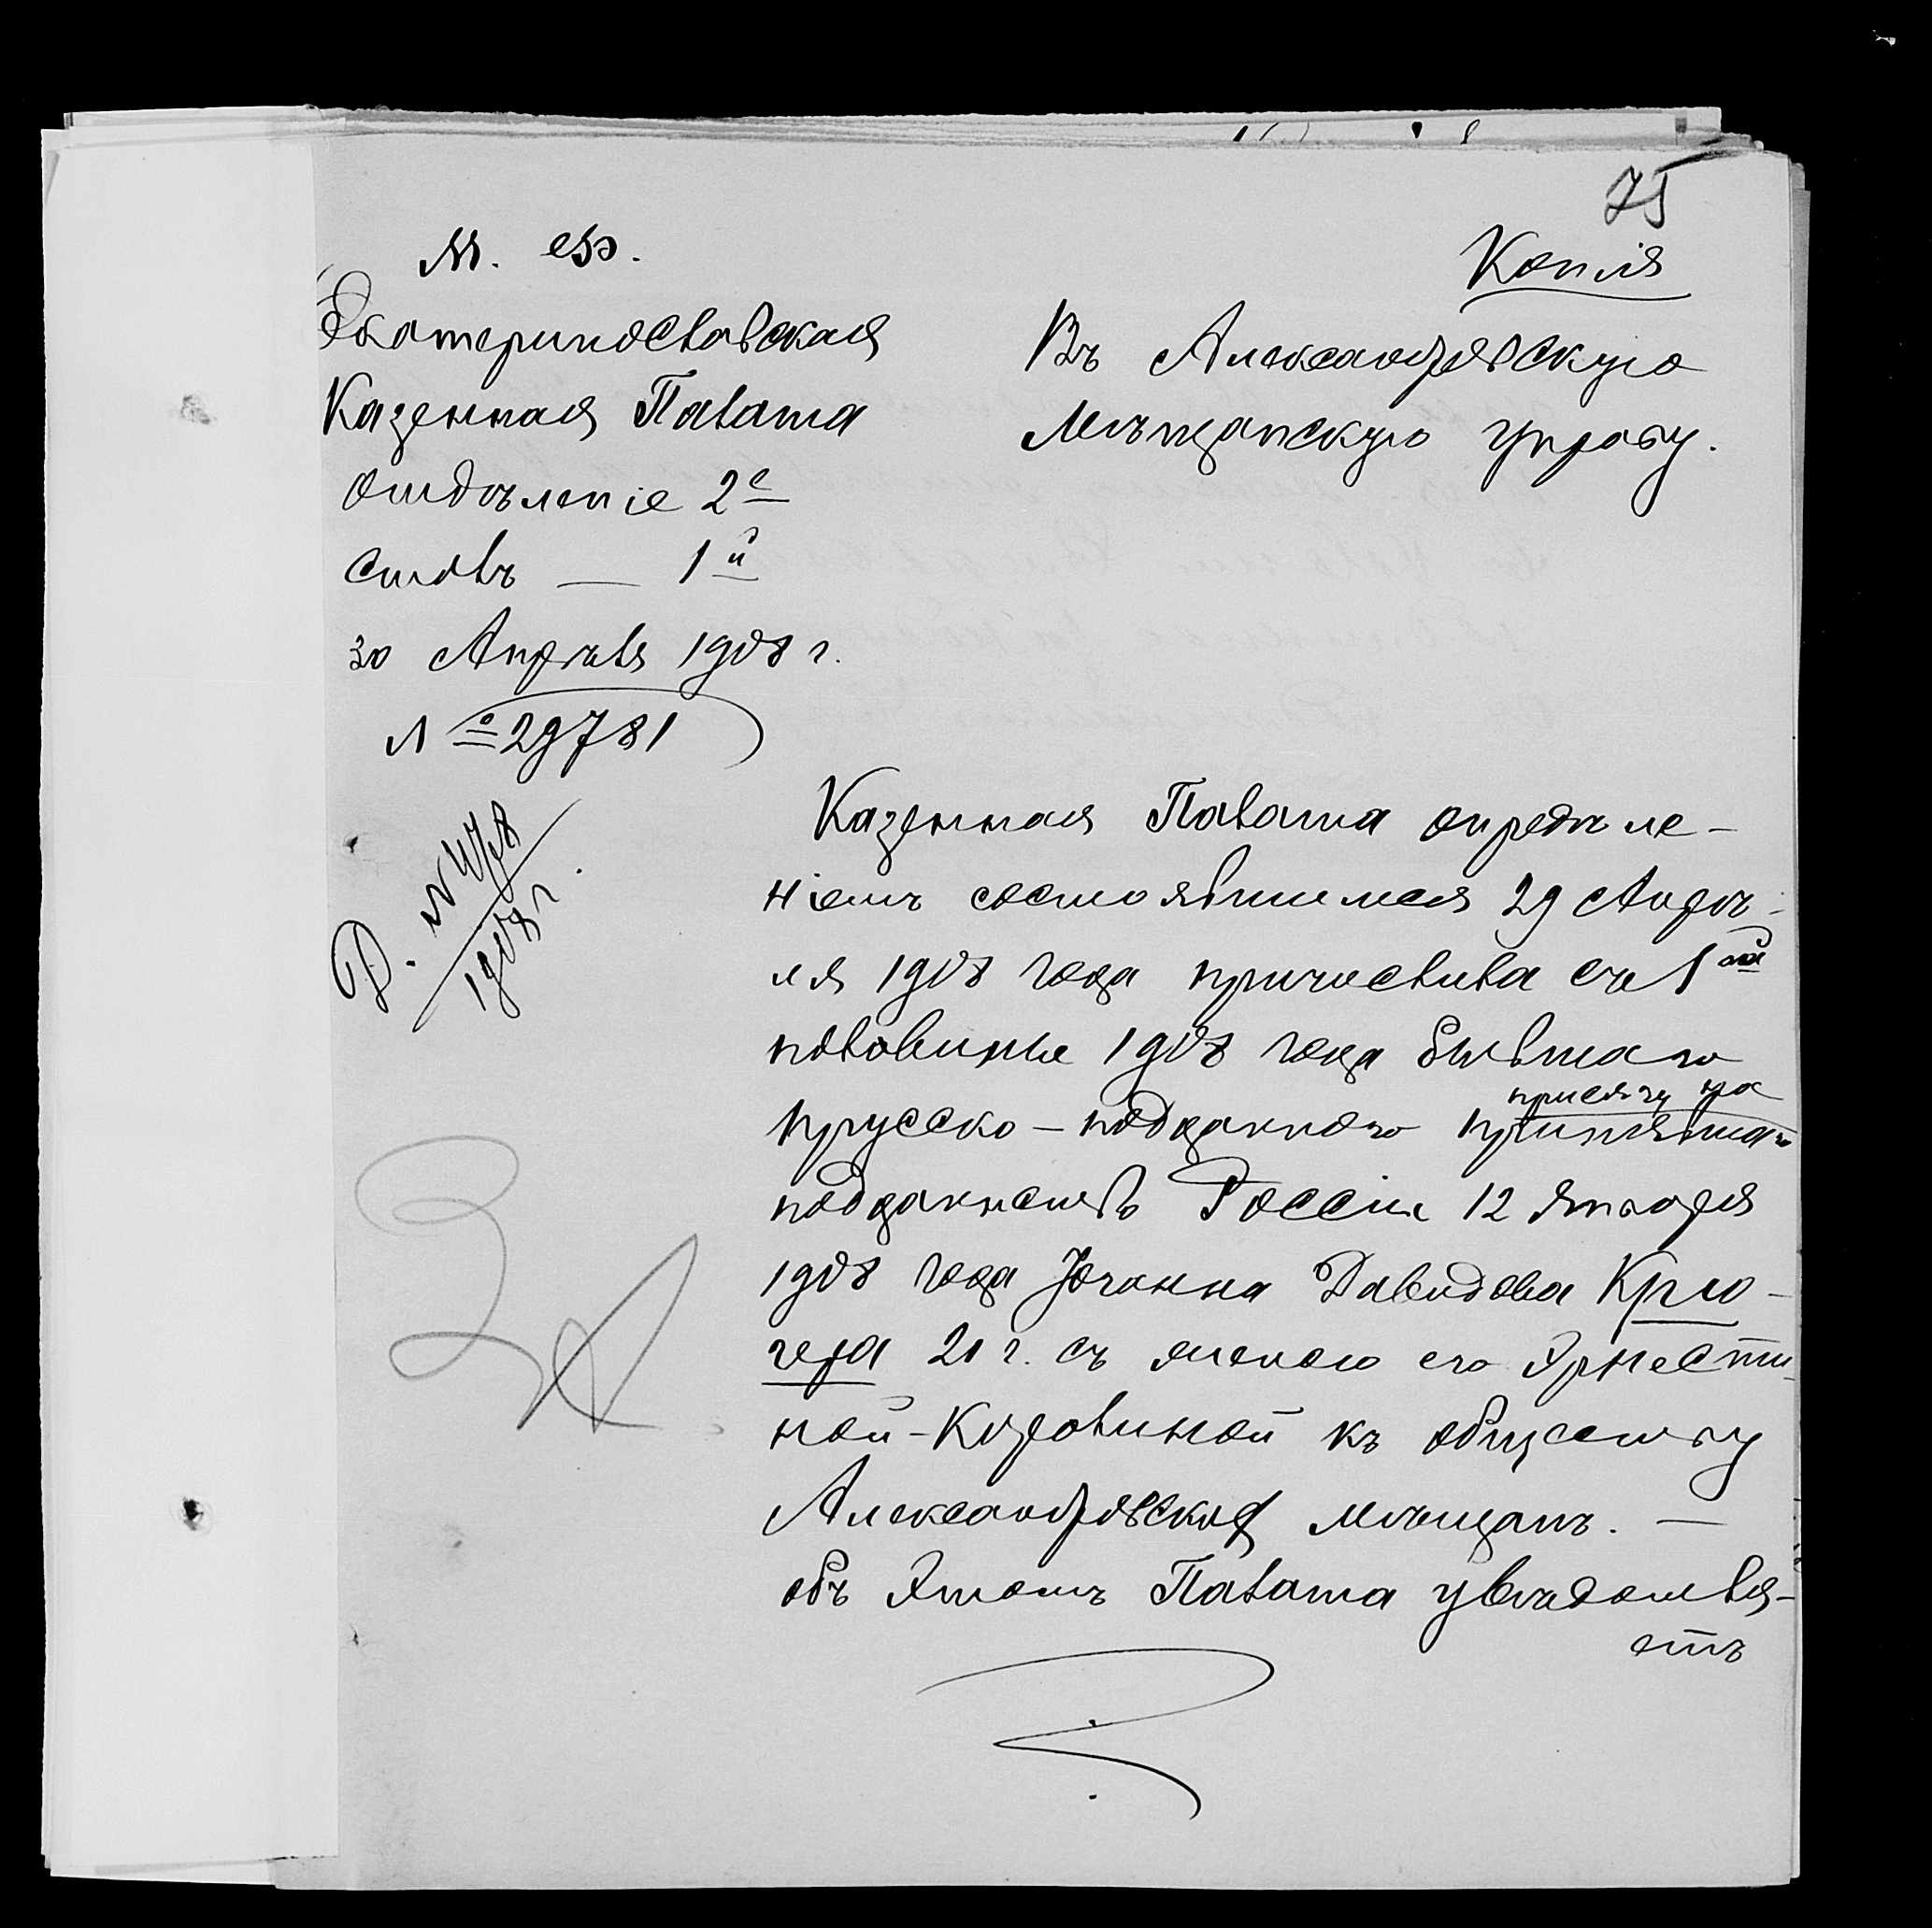 75
Копія
М. Ф.
Екатеринославская
Казенная Палата
Отдѣленіе 2е
Столъ — 1й
30 Апрѣля 1908 г.
№ 29781
Въ Александровскую
Мѣщанскую Управу.
Д. №
1908 г.
Казенная Палата опредѣле-
ніемъ состоявшимся 29 Апрѣ-
ля 1908 года причислила съ 1ой
половины 1908 года бывшаго
присягу на
прусско-подданного принявшаго
подданность Россіи 12 Января
1908 года Іоганна Давидова Крю-
гера 21 г. съ женою его Эрнести-
ной-Каролиной къ обществу
Александровскихъ мѣщанъ. —
объ Этомъ Палата увѣдомля-
етъ